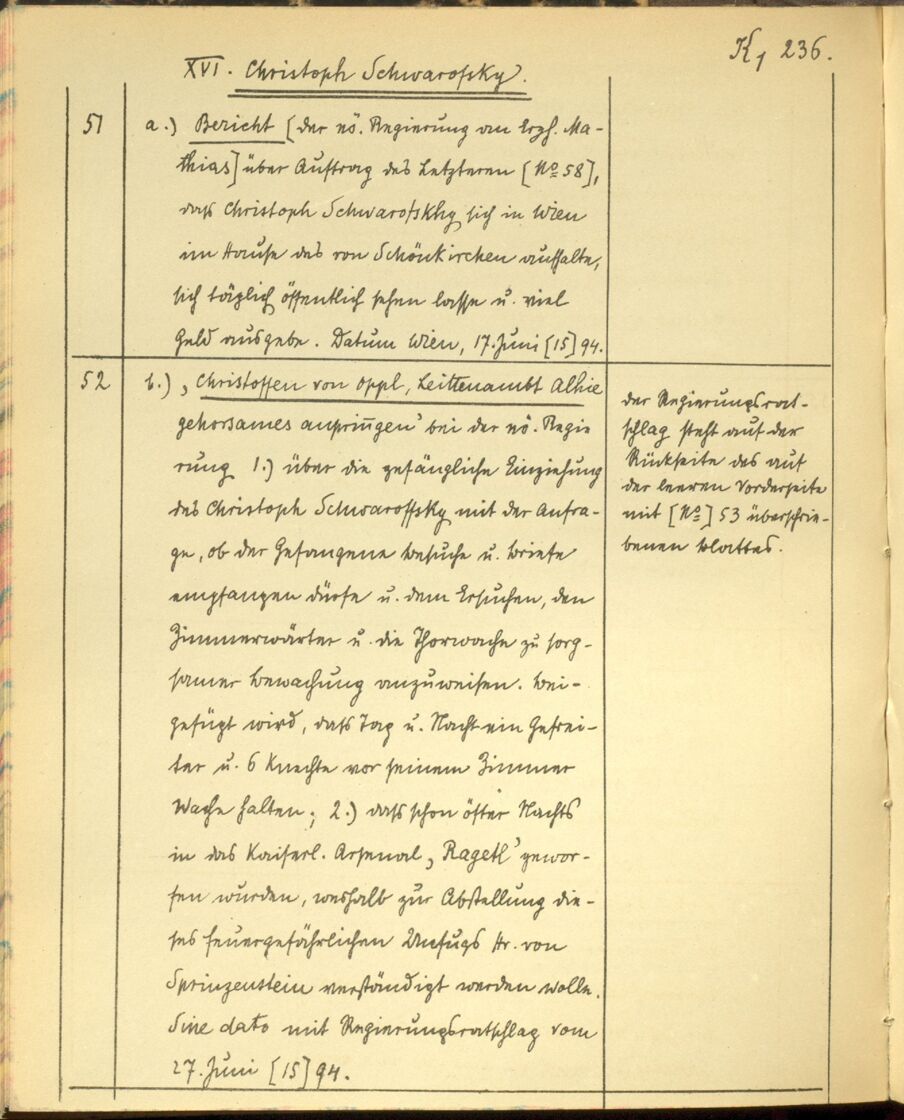 K, 236.
XVI. Christoph Schwarofsky.
51
a.) Bericht [der nö. Regierung an Erzh. Ma-
thias] über Auftrag des Letzteren [No 58],
dass Christoph Schwarofskhy sich in Wien
im Hause des von Schönkirchen aufhalte,
sich täglich öffentlich sehen lasse u. viel
Geld ausgebe. Datum Wien, 17. Juni [15]94.
52
b.) „Christoffen von Oppl, Leittenambt Alhie
gehorsames anpringen" bei der nö. Regie
rung 1.) über die gefängliche Einziehung
des Christoph Schwaroffsky mit der Anfra-
ge, ob der Gefangene Besuche u. Briefe
empfangen dürfe u. dem Ersuchen, den
Zimmerwärter u. die Thorwache zu sorg-
samer Bewachung anzuweisen. Bei-
gefügt wird, dass Tag u. Nacht ein Gefrei-
ter u. 6 Knechte vor seinem Zimmer
Wache halten; 2.) dass schon öfter Nachts
in das Kaiserl. Arsenal „Ragetl" gewor-
fen wurden, weshalb zur Abstellung die-
ses feuergefährlichen Unfugs Hr. von
Sprinzenstein verständigt werden wolle.
Sine dato mit Regierungsratschlag vom
27. Juni [15]94.
der Regierungsrat-
schlag steht auf der
Rückseite des auf
der leeren Vorderseite
mit [No] 53 überschrie-
benen Blattes.